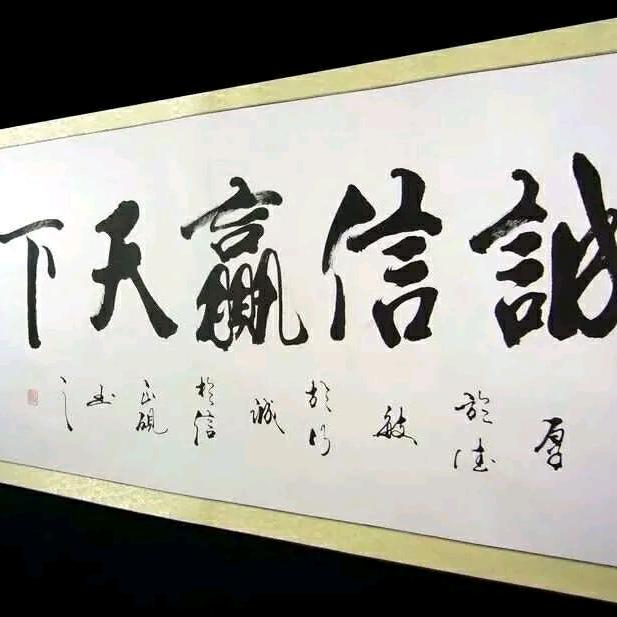 誠信贏天下
厚於德敏於行誠於信
正硯書之